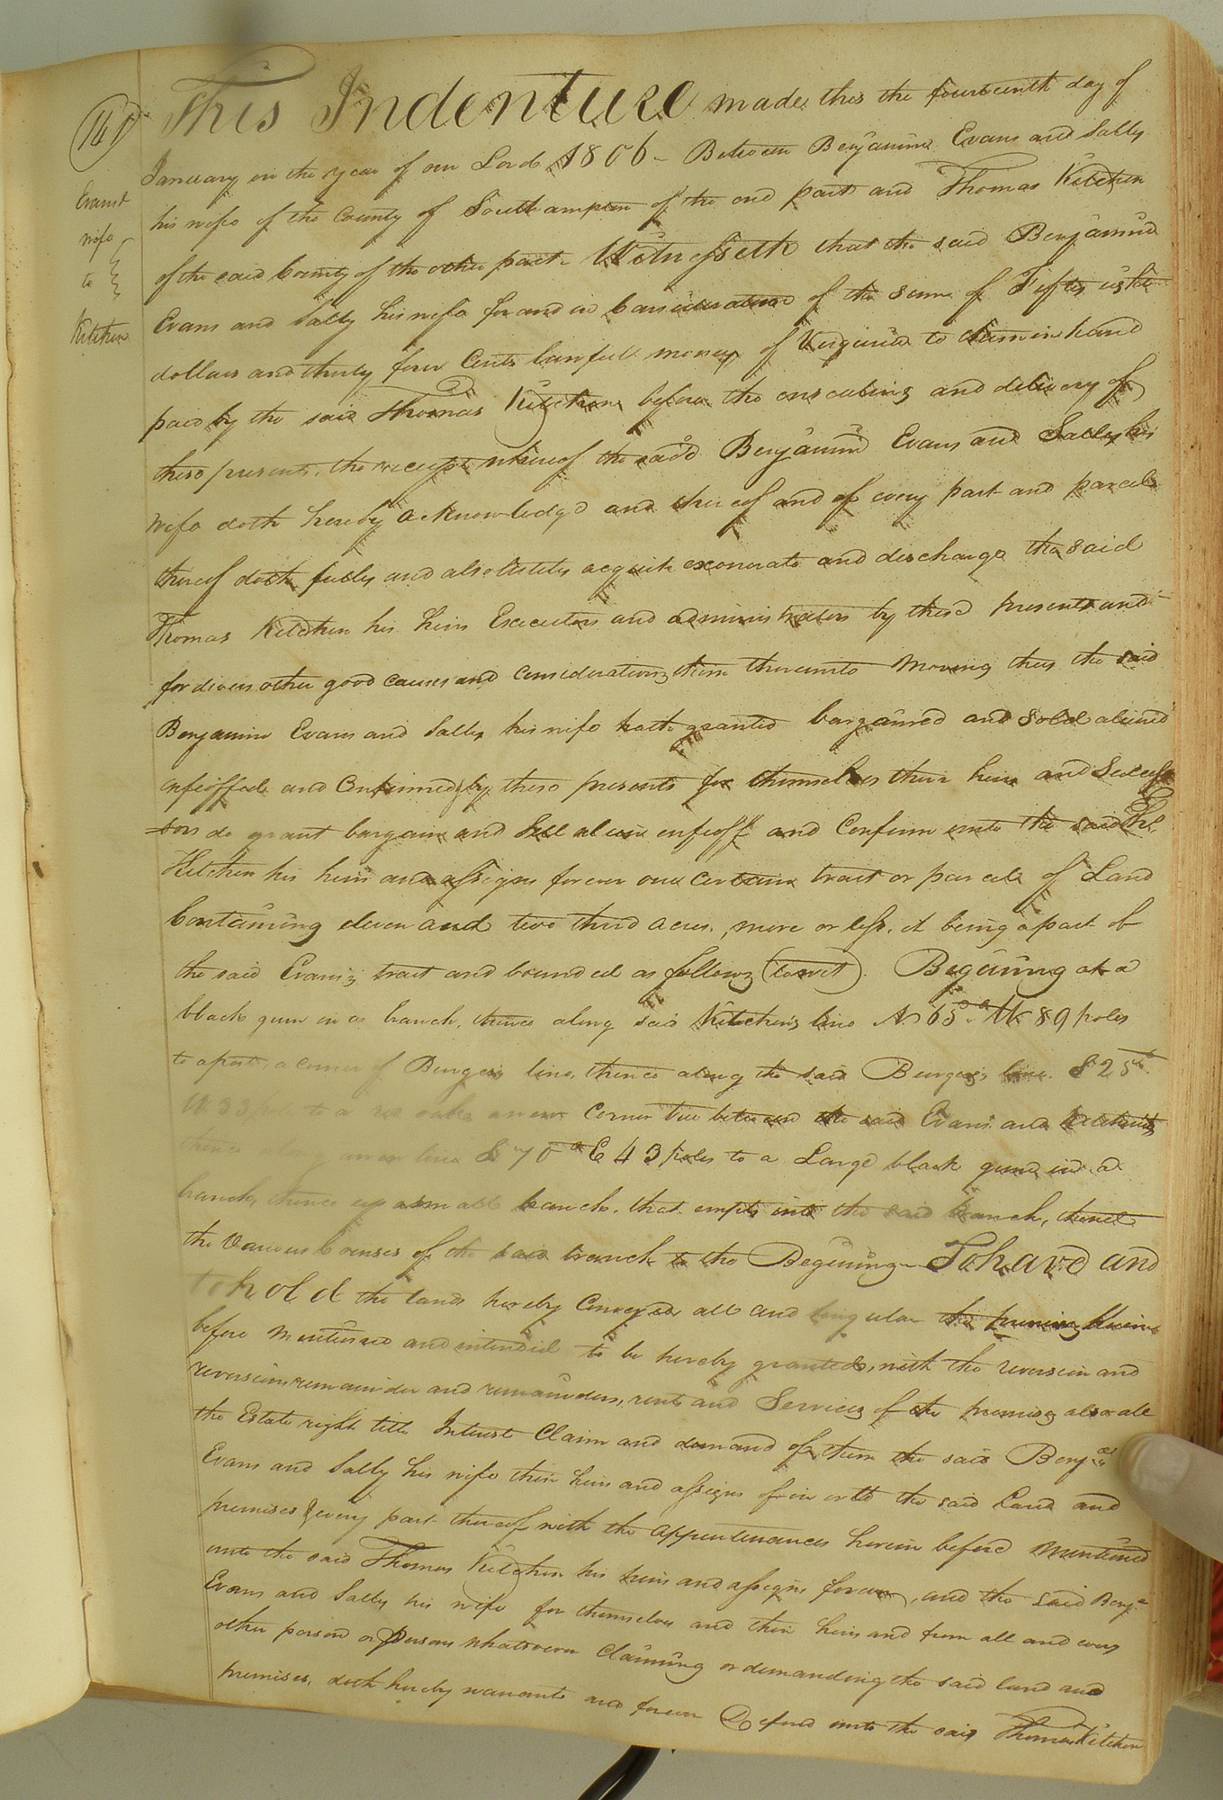 141
Evans &
wife
to
Kitchen
This Indenture made this the fourteenth day of
January in the year of our Lord 1806 - Between Benjamine Evans and Sally
his wife of the County of Southampton of the one part and Thomas Kitchen
of the said County of the other part Witnesseth that the said Benjamine
Evans and Sally his wife for and in Consideration of the sum of Fifty eight
dollars and thirty four Cents lawfull money of Virginia to them in hand
paid by the said Thomas Kitchen before the ensealing and delivery of
these presents, the receipt whereof the said Benjamine Evans and Sally his
wife doth hereby acknowledge and thereof and of every part and parcel
thereof doth fully and absolutely acquit exonerate and discharge the said
Thomas Kitchen his heirs Executors and administrators by these presents and
for divers other good causes and considerations them thereunto moving they the said
Benjamine Evans and Sally his wife hath granted bargained and sold aliened
enfeoffed and Confirmed by these presents for themselves their heirs and Success
=sors do grant bargain and Sell alien enfeoff and Confirm unto the said Ths.
Kitchen his heirs and assigns forever one certain tract or parcel of Land
Containing eleven and two third acres, more or less, it being a part of
the said Evans's tract and bounded as follows (towit). Begining at a
black gum in a branch, thence along said Kitchen's line N 65° W 89 poles
to a post a corner of Burges's line, thence along the said Burges's line S 25
W 33 to a red oak a new corner tree between the said Evans and Kitchen
thence along a new line S 70 E 43 poles to a Large black gum in a
branch, thence up a small branch, that empts into the said branch, thence
the Various Courses of the said branch to the Begining - To have and
to hold the lands hereby Conveyed all and singular the premises herein
before mentioned and intended to be hereby granted, with the reversion and
reversions remainder and remainders, rents and Services of the premises also all
the Estate right title Interest Claim and demand of them the said Benja
Evans and Sally his wife their heirs and assigns of in or to the said Land and
premises & every part thereof with the appurtenances herein before mentioned
unto the said Thomas Kitchen his heirs and assigns forever, and the said Benja
Evans and Sally his wife for themselves and their heirs and from all and every
other person or persons whatsoever Claiming or demanding the said land and
premises, doth hereby warrant and forever Defend unto the said Thomas Kitchen